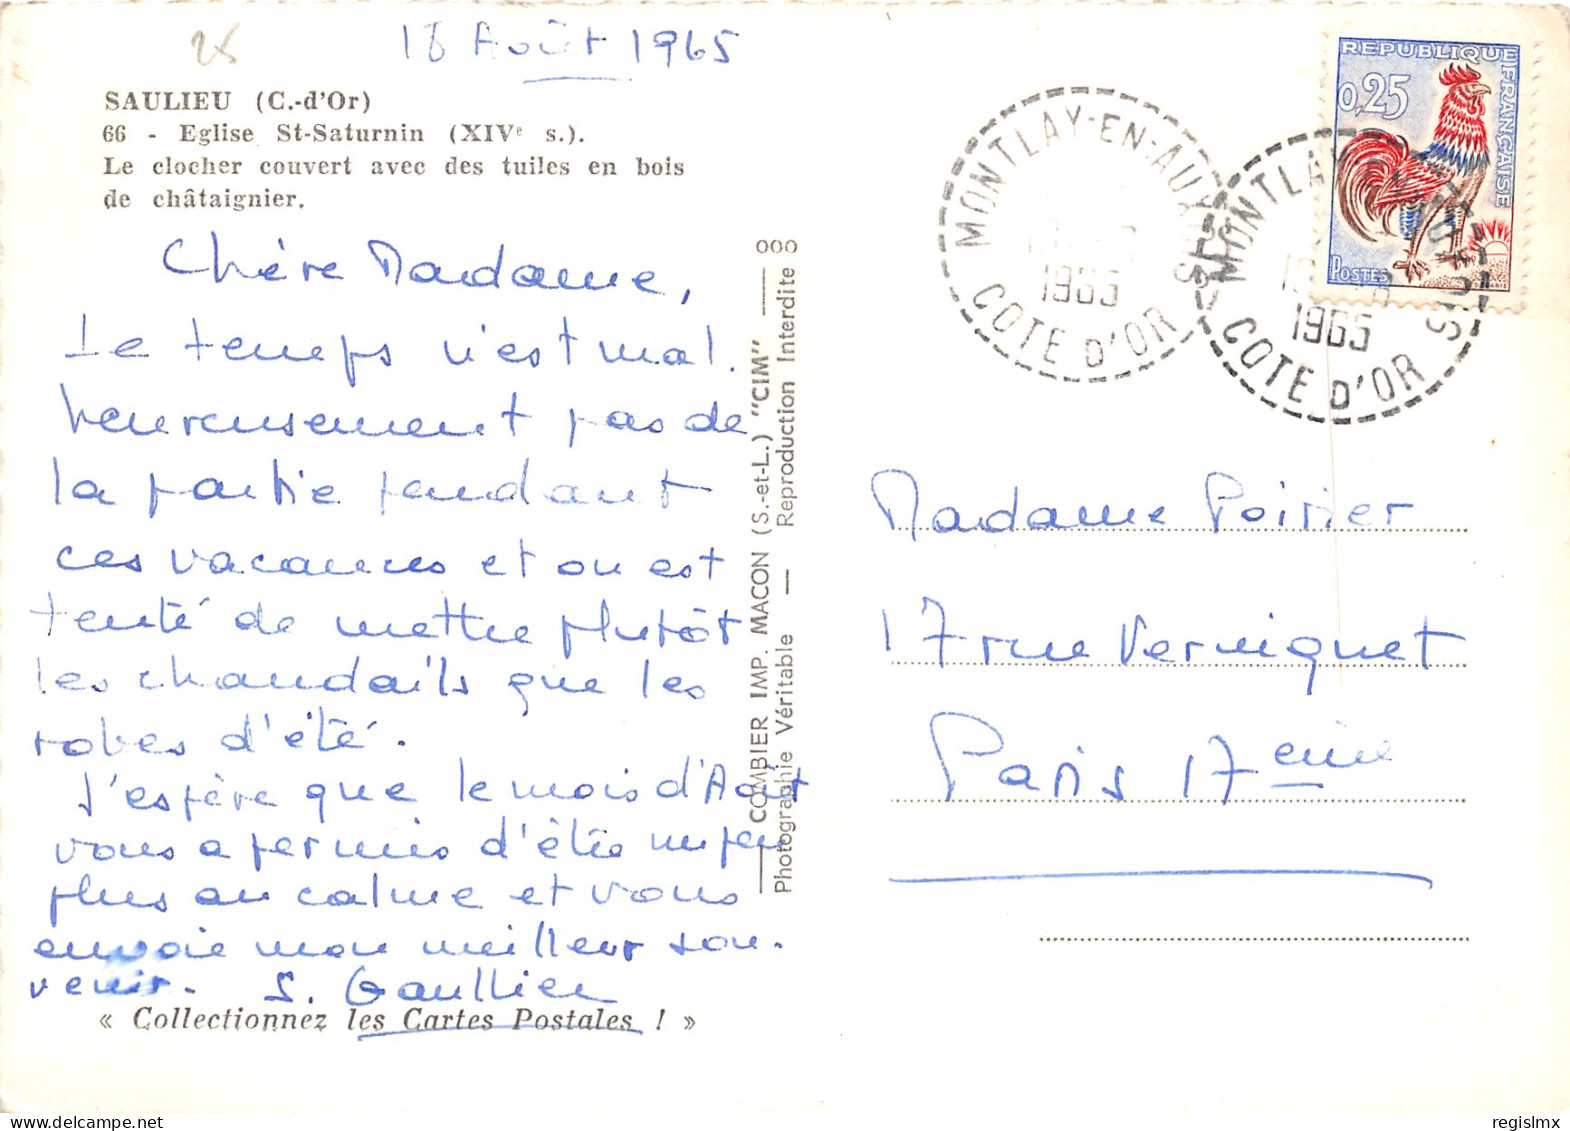 25
18 Août 1965
SAULIEU (C.-d'Or)
66 - Eglise St-Saturnin (XIVe s.).
Le clocher couvert avec des tuiles en bois
de châtaignier.
Chère Madame,
Le temps n'est mal.
heureusement pas de
la partie pendant
ces vacances et on est
tenté de mettre plutôt
les chandails que les
robes d'été.
J'espère que le mois d'Août
vous a permis d'être un peu
plus au calme et vous
envoie mon meilleur sou-
venir. S. Gaullier
« Collectionnez les Cartes Postales ! »
COMBIER IMP. MACON (S.-et-L.) "CIM"
Photographie Véritable — Reproduction Interdite
000
REPUBLIQUE FRANÇAISE
0,25
POSTES
MONTLAY-EN-AUXOIS
1965
COTE D'OR
MONTLAY-EN-AUXOIS
1965
COTE D'OR
Madame Poirier
17 rue Verniquet
Paris 17eme
regislmx